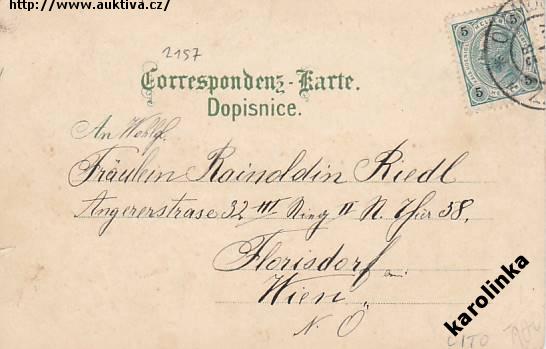 http://www.auktiva.cz/
2157
5 5
5 5
Correspondenz-Karte.
Dopisnice.
An Wohlg.
Fräulein Rainoldin Riedl
Angererstrase 32 III Ring II N. Thür 38,
Florisdorf
Wien
N. Ö
karolinka